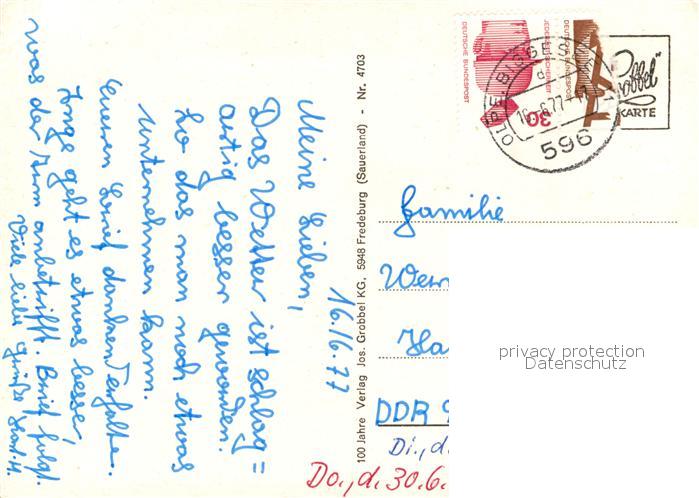 16./6.77
Meine Lieben,
Das Wetter ist schlag=
artig besser geworden.
So das man noch etwas
unternehmen kann.
Eueren Brief dankend erhalten.
Inge geht es etwas besser,
was der Turm anbetrifft. Brief folgt.
Viele liebe Grüße
100 Jahre Verlag Jos. Grobbel KG, 5948 Fredeburg (Sauerland) - Nr. 4703
DEUTSCHE BUNDESPOST
JEDERZEIT SICHERHEIT
30
DEUTSCHE BUNDESPOST
OLPE BIGGESEE
16.-6.77-17
596
Grobbel
KARTE
Familie
Wer
Ha
DDR 9
Di., d.
Do., d. 30.6.
privacy protection
Datenschutz